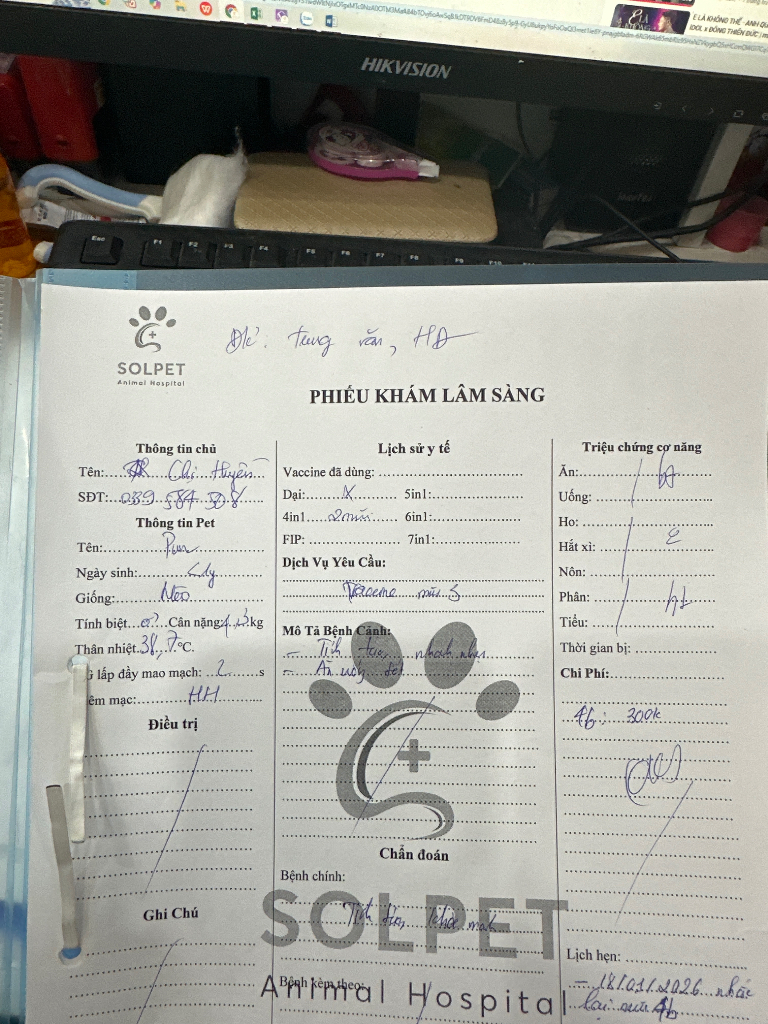 HIKVISION
Esc F1 F2 F3 F4 F5 F6 F7 F8 F9 F10
SOLPET
Animal Hospital
Đ/c: Tung văn, HD
PHIẾU KHÁM LÂM SÀNG
Thông tin chủ
Tên: Chị Huyền
SĐT: 039 584 508
Thông tin Pet
Tên: Pun
Ngày sinh:
Giống: Mèo
Tính biệt ♂ Cân nặng: kg
Thân nhiệt 38,7 °C.
lấp đầy mao mạch: 2 s
êm mạc: HH
Điều trị
Ghi Chú
Lịch sử y tế
Vaccine đã dùng:
Dại: X 5in1:
4in1 2 mũi 6in1:
FIP: 7in1:
Dịch Vụ Yêu Cầu:
Vaccine mũi 3
Mô Tả Bệnh Cảnh:
- Tỉnh táo nhanh nhẹn
- Ăn uống tốt
Chẩn đoán
Bệnh chính:
Tỉnh táo, khỏe mạnh
Bệnh kèm theo:
SOLPET
Animal Hospital
Triệu chứng cơ năng
Ăn:
Uống:
Ho:
Hắt xì:
Nôn:
Phân:
Tiểu:
Thời gian bị:
Chi Phí:
4b: 300k
Lịch hẹn:
- 18/01/2026 nhắc
lại mũi 4b